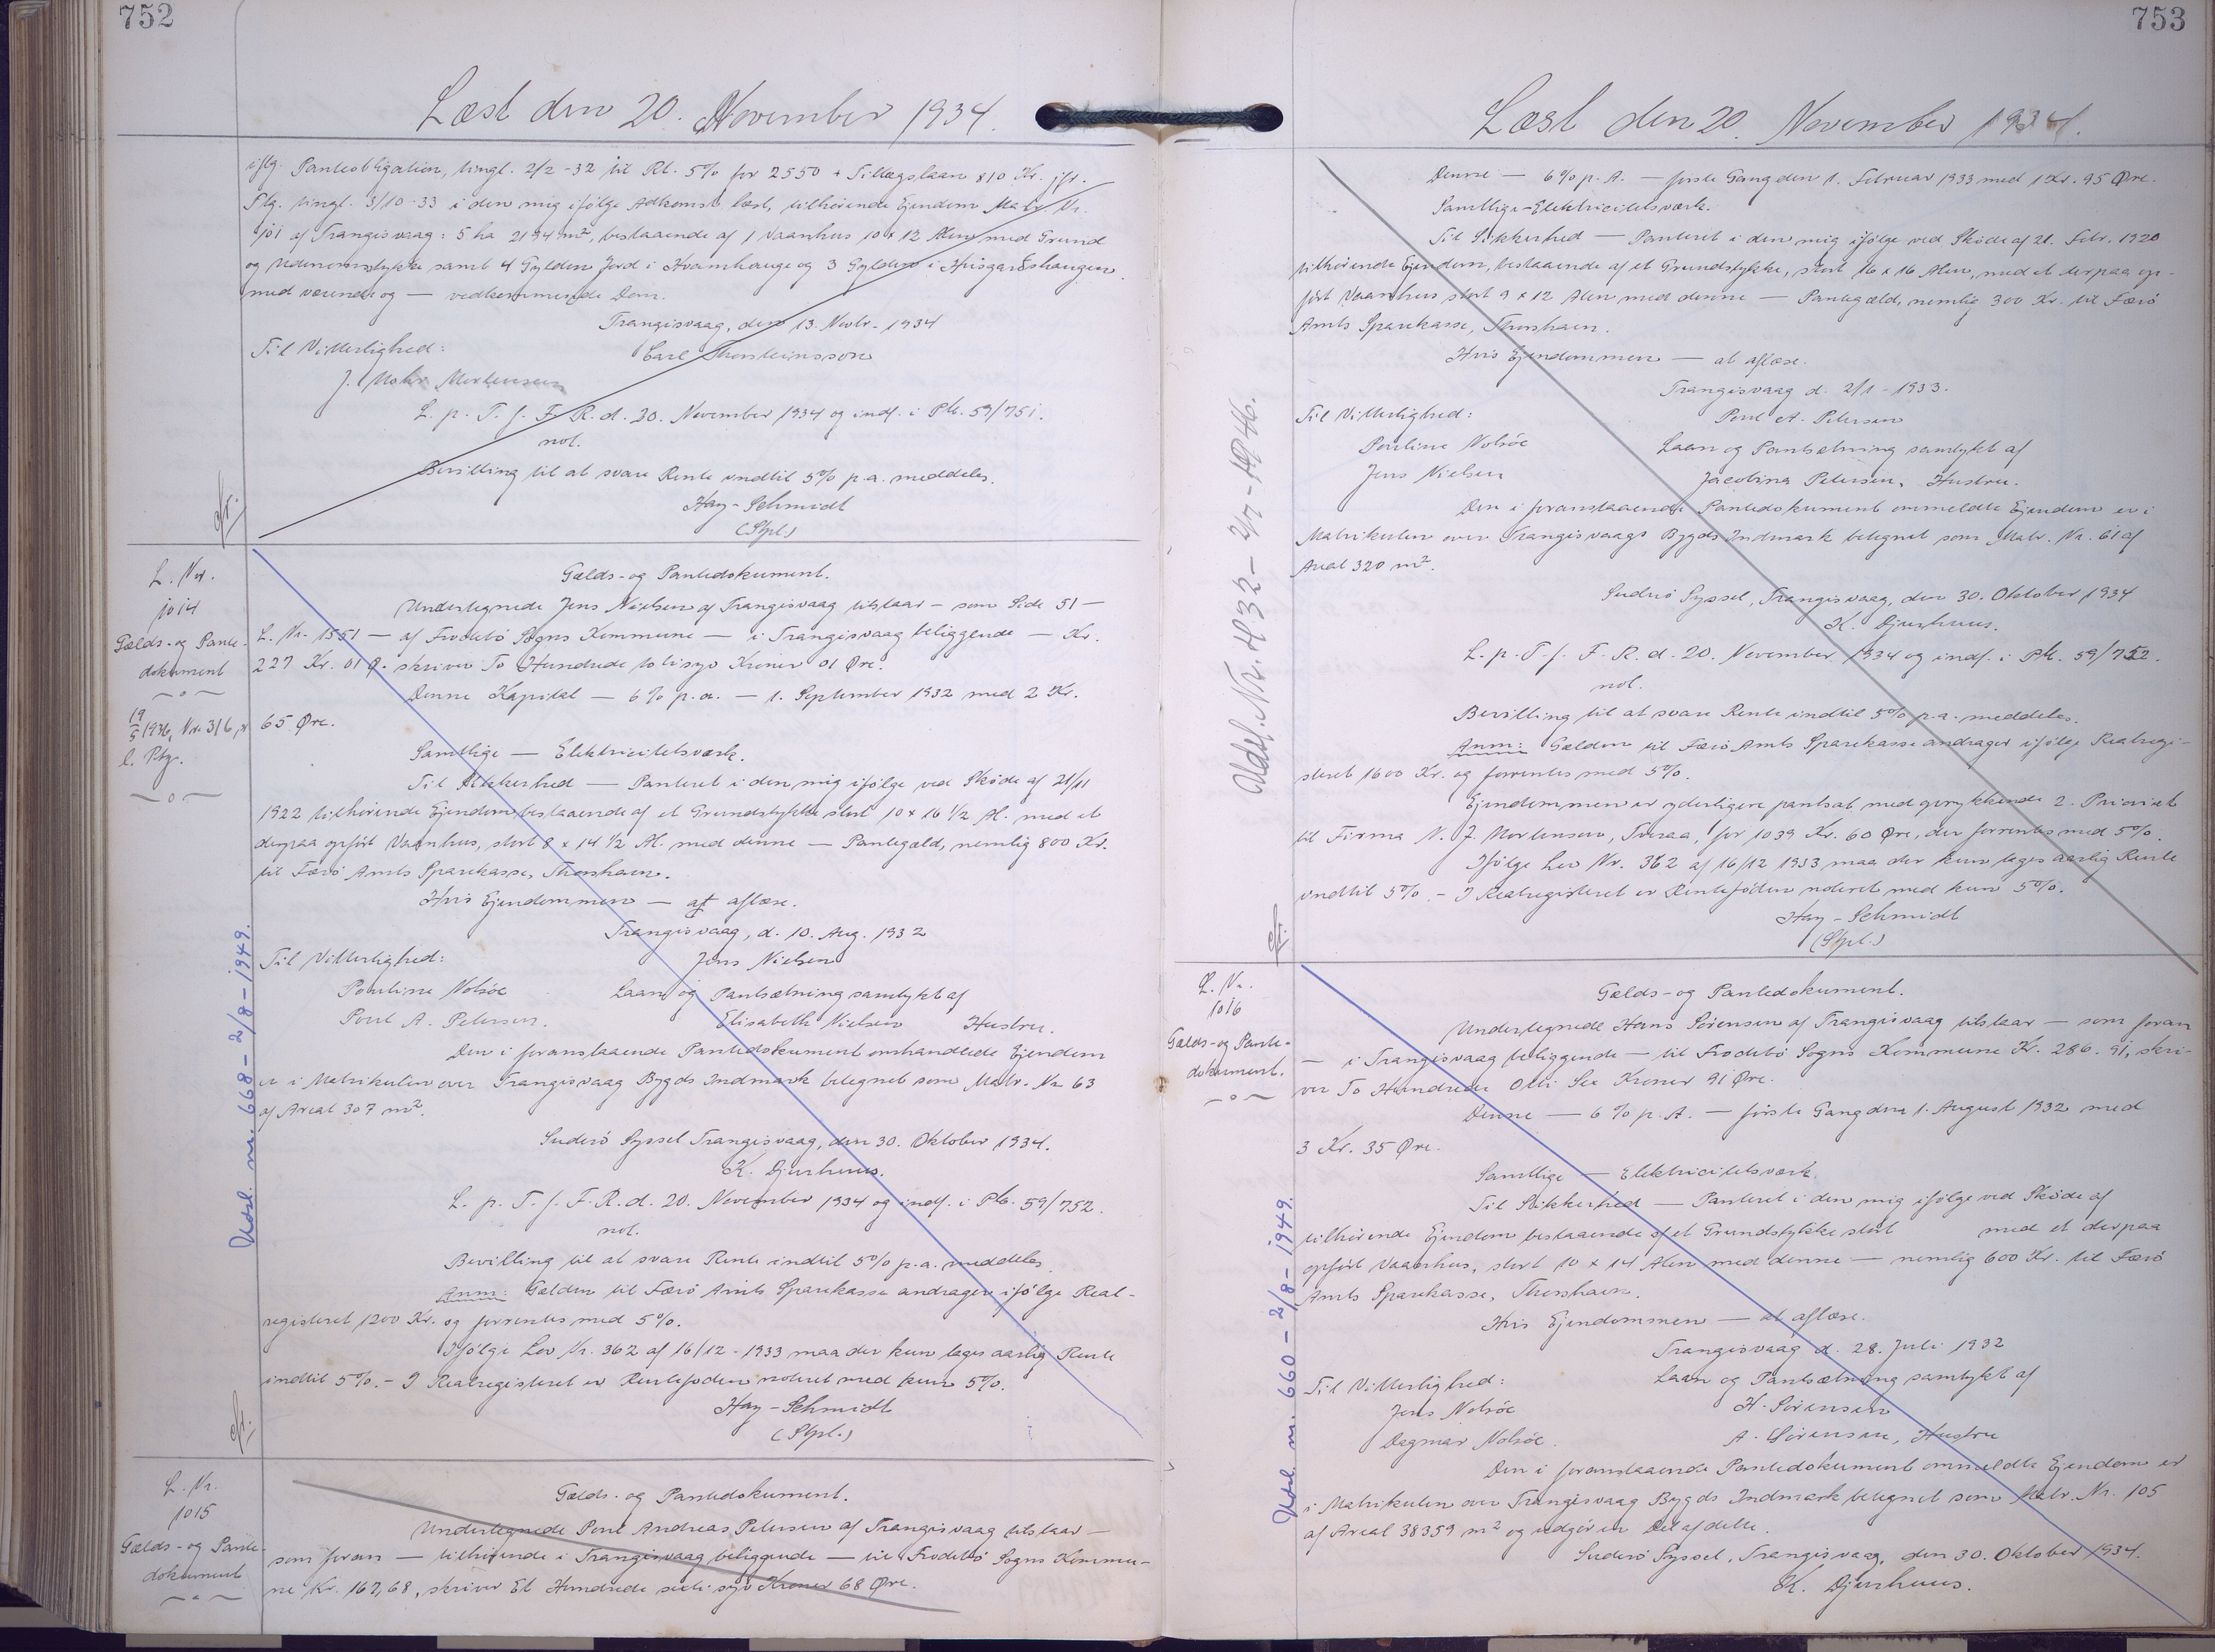 752
Læst den 20. November 1934.
iflg. Panteobligation, tingl. 2/2-32 til Rt. 5% for 2550 + Tillægslaan 810 Kr. jfr.
Ptg. tingl. 3/10-33 i den mig ifølge Adkomst læst, tilhørende Ejendom Matr. Nr.
101 af Trangisvaag: 5 ha 2194 m², bestaaende af 1 Vaanhus 10 x 12 Alen med Grund
og Udenomsstykke samt 4 Gylden Jord i Kvamhauge og 3 Gylden i Húsgardshaugen
med værende og — vedkommende Dom.
Trangisvaag, den 13. Novbr. 1934
Til Vitterlighed: Carl Thorsteinsson
J. Mohr Mortensen
L. p. T. f. F. R. d. 20. November 1934 og indf. i Ptb. 59/751.
not.
Bevilling til at svare Rente indtil 5% p.a. meddeles.
Hay-Schmidt
(Stpl.)
cfr.
L. Nr.
1014
Gælds- og Pante-
dokument
19/5 1936, Nr. 316,
l. Ptg.
Udsl. nr. 668 - 2/8 - 1949.
Gælds- og Pantedokument.
Undertegnede Jens Nielsen af Trangisvaag tilstaar — som Side 51 —
L. Nr. 1551 — af Frodebö Sogns Kommune — i Trangisvaag beliggende — Kr.
227 Kr. 01 Ø. skriver To Hundrede to tisyv Kroner 01 Øre.
Denne Kapital — 6% p.a. — 1. September 1932 med 2 Kr.
65 Øre.
Samtlige — Elektricitetsværk.
Til Sikkerhed — Panteret i den mig ifølge ved Sköde af 21/11
1922 tilhørende Ejendom bestaaende af et Grundstykke stort 10 x 16 1/2 Al. med et
derpaa opført Vaanhus, stort 8 x 14 1/2 Al. med denne — Pantegæld, nemlig 800 Kr.
til Færö Amts Sparekasse, Thorshavn.
Hvis Ejendommen — at aflæse.
Trangisvaag, d. 10. Aug. 1932
Til Vitterlighed: Jens Nielsen
Pouline Nolsöe Laan og Pantsætning samtykt af
Poul A. Petersen. Elisabeth Nielsen Hustru.
Den i foranstaaende Pantedokument omhandlede Ejendom
er i Matrikulen over Trangisvaag Bygds Indmark betegnet som Matr. Nr. 63
af Areal 307 m².
Suderö Syssel Trangisvaag, den 30. Oktober 1934.
K. Djurhuus.
L. p. T. f. F. R. d. 20. November 1934 og indf. i Ptb. 59/752.
not.
Bevilling til at svare Rente indtil 5% p.a. meddeles.
Anm: Gælden til Færö Amts Sparekasse andrager ifølge Real-
registret 1200 Kr. og forrentes med 5%.
Ifølge Lov Nr. 362 af 16/12-1933 maa der kun tages aarlig Rente
indtil 5%. - I Realregistret er Rentefoden noteret med kun 5%.
Hay-Schmidt
(Stpl.)
cfr.
L. Nr.
1015
Gælds- og Pante-
dokument
Gælds- og Pantedokument.
Undertegnede Poul Andreas Petersen af Trangisvaag tilstaar —
som foran — tilhørende i Trangisvaag beliggende — til Frodebö Sogns Kommu-
ne Kr. 167,68, skriver Et Hundrede seksti syv Kroner 68 Øre.
753
Læst den 20. November 1934.
Denne — 6% p. A. — første Gang den 1. Februar 1933 med 1 Kr. 95 Øre.
Samtlige - Elektricitetsværk.
Til Sikkerhed — Panteret i den mig ifølge ved Sköde af 21. Febr. 1920
tilhørende Ejendom, bestaaende af et Grundstykke, stort 16 x 16 Alen, med et derpaa op-
ført Vaanhus stort 9 x 12 Alen med denne — Pantegæld, nemlig 300 Kr. til Færö
Amts Sparekasse, Thorshavn.
Hvis Ejendommen — at aflæse.
Trangisvaag d. 2/1-1933.
Til Vitterlighed: Poul A. Petersen
Pouline Nolsöe Laan og Pantsætning samtykt af
Jens Nielsen Jacobina Petersen, Hustru.
Den i foranstaaende Pantedokument ommeldte Ejendom er i
Matrikulen over Trangisvaags Bygds Indmark betegnet som Matr. Nr. 61 af
Areal 320 m².
Suderö Syssel, Trangisvaag, den 30. Oktober 1934
K. Djurhuus.
L. p. T. f. F. R. d. 20. November 1934 og indf. i Ptb. 59/752.
not.
Bevilling til at svare Rente indtil 5% p.a. meddeles.
Anm: Gælden til Færö Amts Sparekasse andrager ifølge Realregi-
steret 1600 Kr. og forrentes med 5%.
Ejendommen er yderligere pantsat med oprykkende 2. Prioritet
til Firma N. J. Mortensen, Tveraa, for 1039 Kr. 60 Øre, der forrentes med 5%.
Ifølge Lov Nr. 362 af 16/12 1933 maa der kun tages aarlig Rente
indtil 5%. - I Realregistret er Rentefoden noteret med kun 5%.
Hay-Schmidt
(Stpl.)
Udsl. Nr. 432 - 2/7 - 1946.
cfr.
L. Nr.
1016
Gælds- og Pante-
dokument.
Udsl. nr. 660 - 2/8 - 1949.
Gælds- og Pantedokument.
Undertegnede Hans Sörensen af Trangisvaag tilstaar — som foran
— i Trangisvaag beliggende — til Frodebö Sogns Kommune Kr. 286. 91, skri-
ver To Hundrede Otti Sex Kroner 91 Øre.
Denne — 6% p. A. — første Gang den 1. August 1932 med
3 Kr. 35 Øre.
Samtlige — Elektricitetsværk.
Til Sikkerhed — Panteret i den mig ifølge ved Sköde af
tilhørende Ejendom bestaaende af et Grundstykke stort med et derpaa
opført Vaanhus, stort 10 x 14 Alen med denne — nemlig 600 Kr. til Færö
Amts Sparekasse, Thorshavn.
Hvis Ejendommen — at aflæse.
Trangisvaag d. 28. Juli 1932
Til Vitterlighed: Laan og Pantsætning samtykt af
Jens Nolsöe H. Sörensen
Dagmar Nolsöe. A. Sörensen, Hustru
Den i foranstaaende Pantedokument ommeldte Ejendom er
i Matrikulen over Trangisvaag Bygds Indmark betegnet som Matr. Nr. 105
af Areal 38359 m² og udgör en Del af dette.
Suderö Syssel, Trangisvaag, den 30. Oktober 1934.
K. Djurhuus.